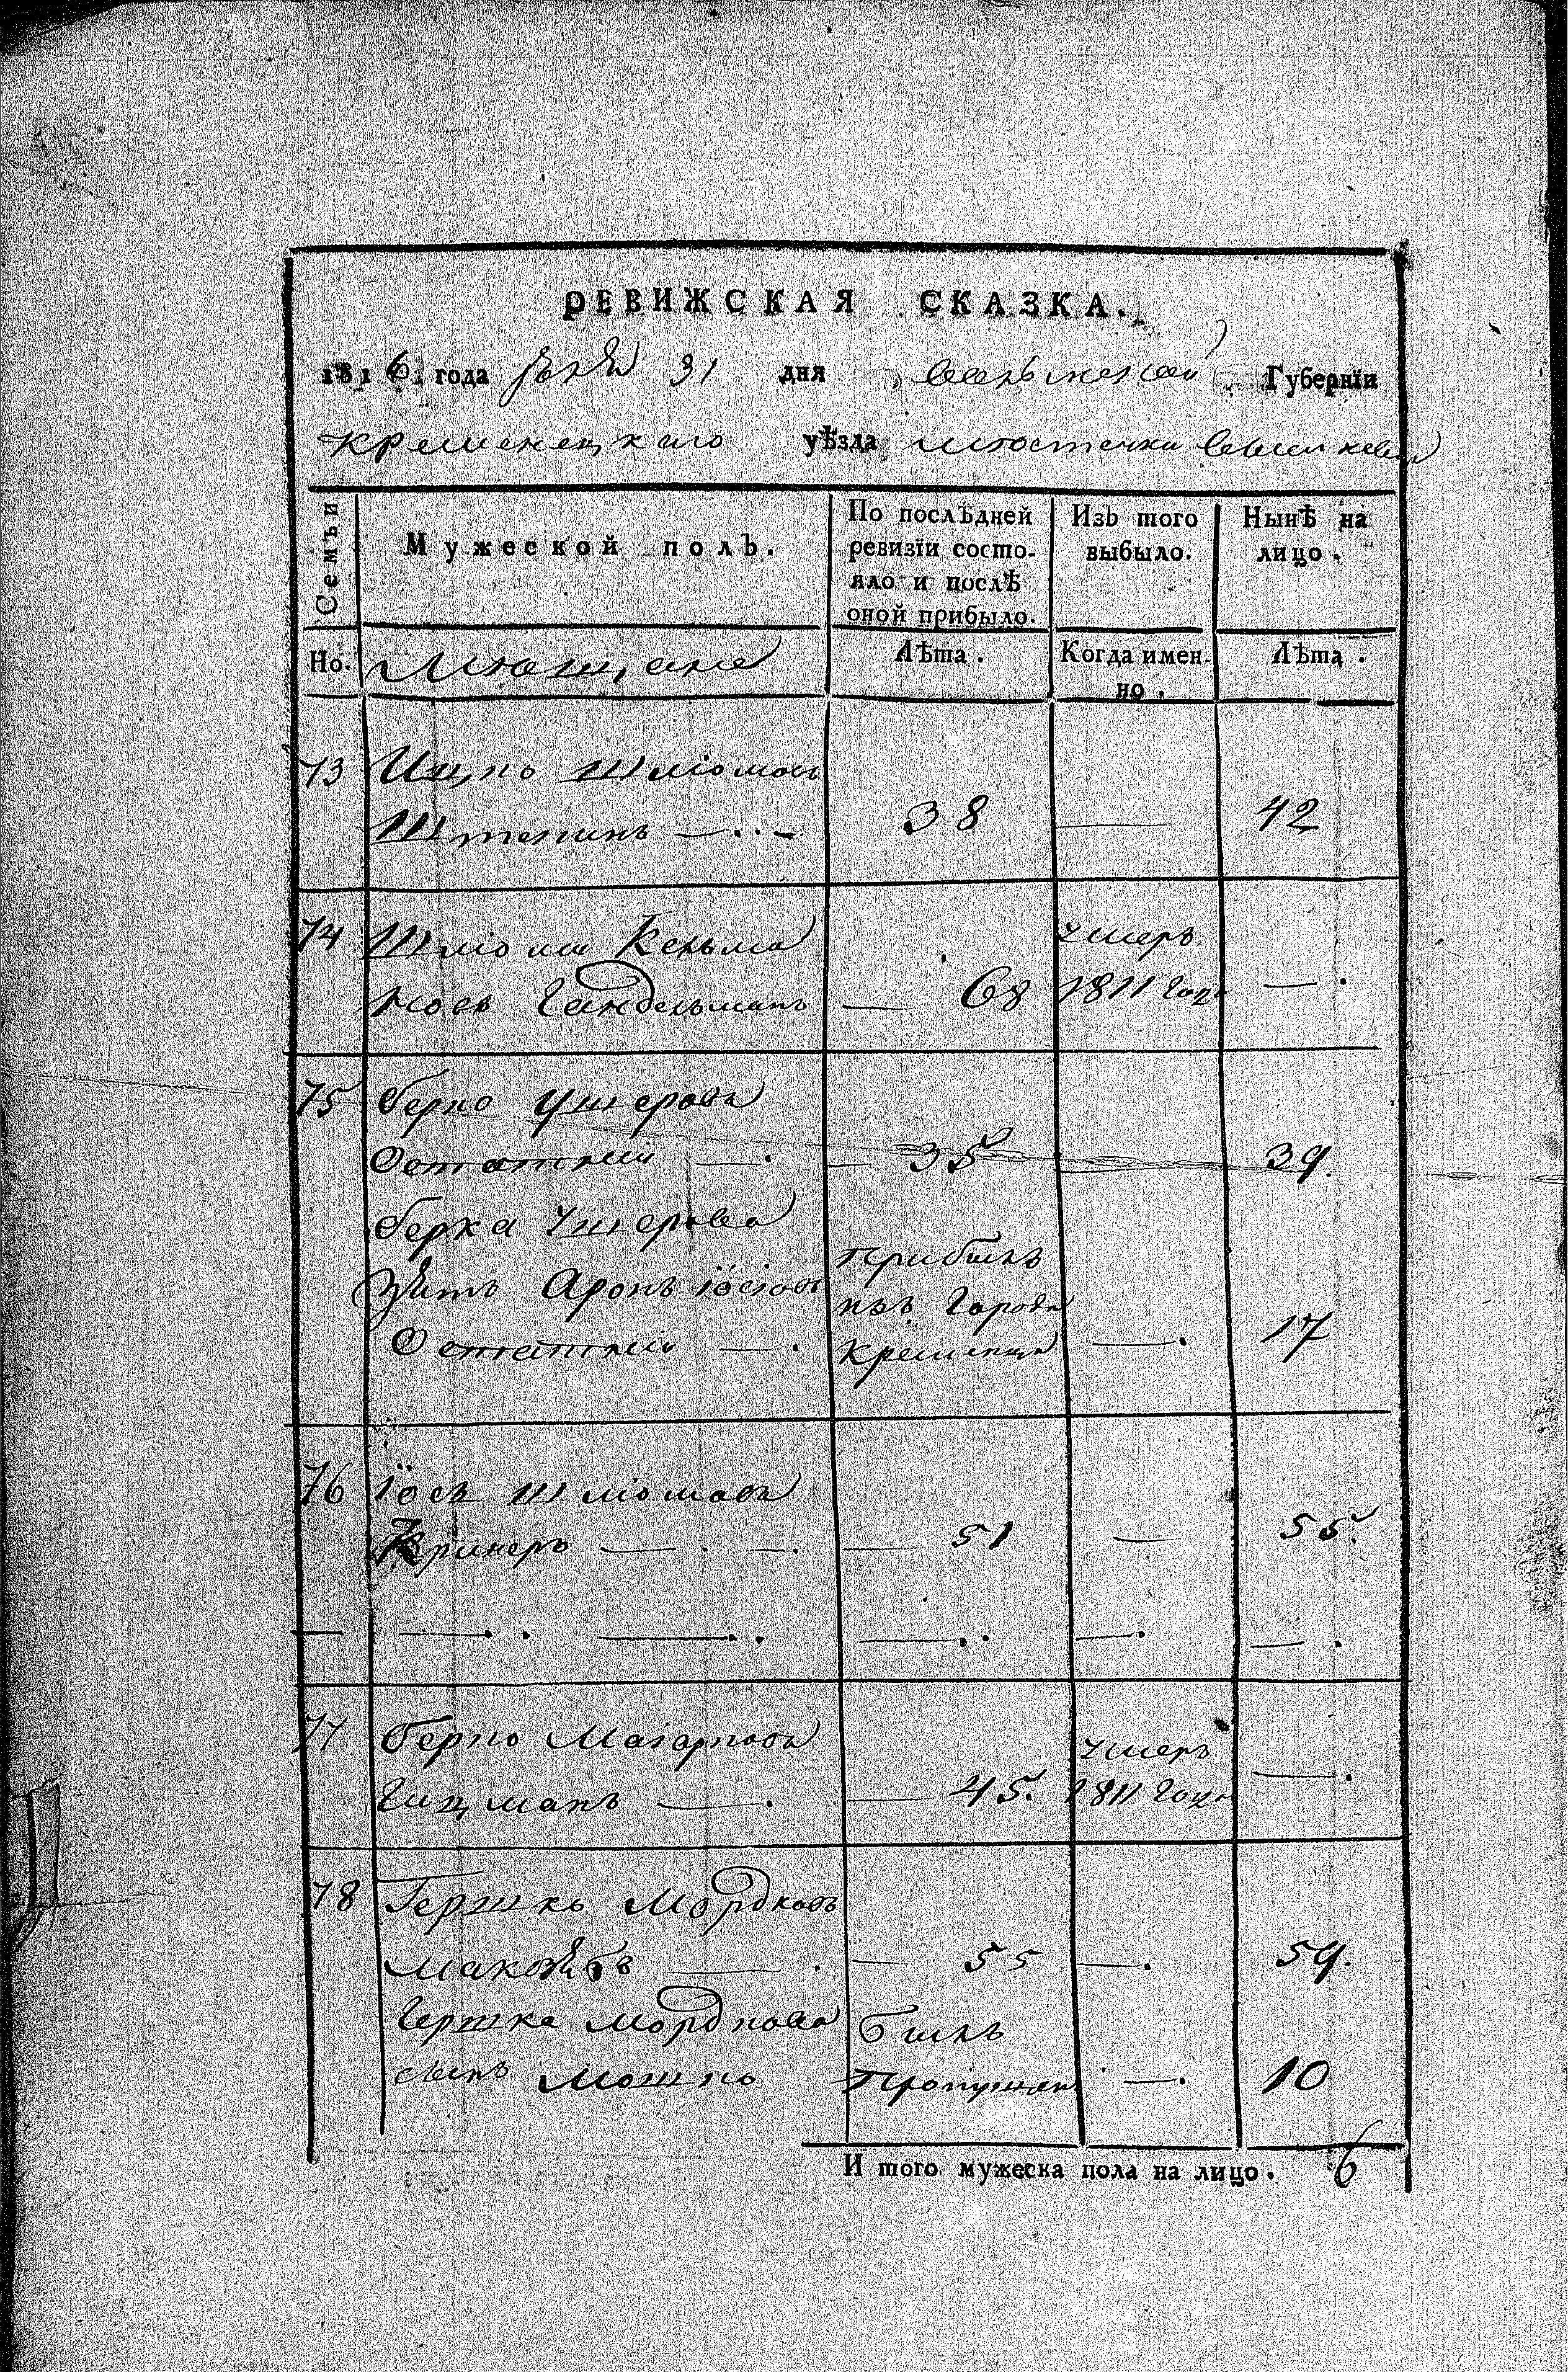 РЕВИЖСКАЯ СКАЗКА.
1816 года 31 дня Волынской Губернїи
Кременецкаго уѣзда местечки
Семьи
Мужеской полъ.
По послѣдней ревизїи состо-
яло и послѣ
оной прибыло.
Изъ того
выбыло.
Нынѣ на
лицо.
Но. Мещане
Лѣта.
Когда имен-
но.
Лѣта.
73 Ицко Шліомов
38 — 42
74 Шліома Кельма
нов Гандельманъ — 68 умеръ 1811 году — .
75 Берко Ушеровъ
Остатній — . — 35 39.
Берка Ушерова
зять Аронъ Іосіовъ
Остатній — .
прибылъ
изъ Города
Кременца — . 17
76 Іось Шліомовъ
— . — . — 51 — 55.
— — . . — . . — . . — . — .
77 Берко
Гицманъ — . — 45. умеръ 1811 году — .
78 Гершко Мордковъ
— . — 55 — . 59.
Гершка Мордкова
сынъ Мошко
былъ
пропущен — . 10
И того мужеска пола на лицо. 6